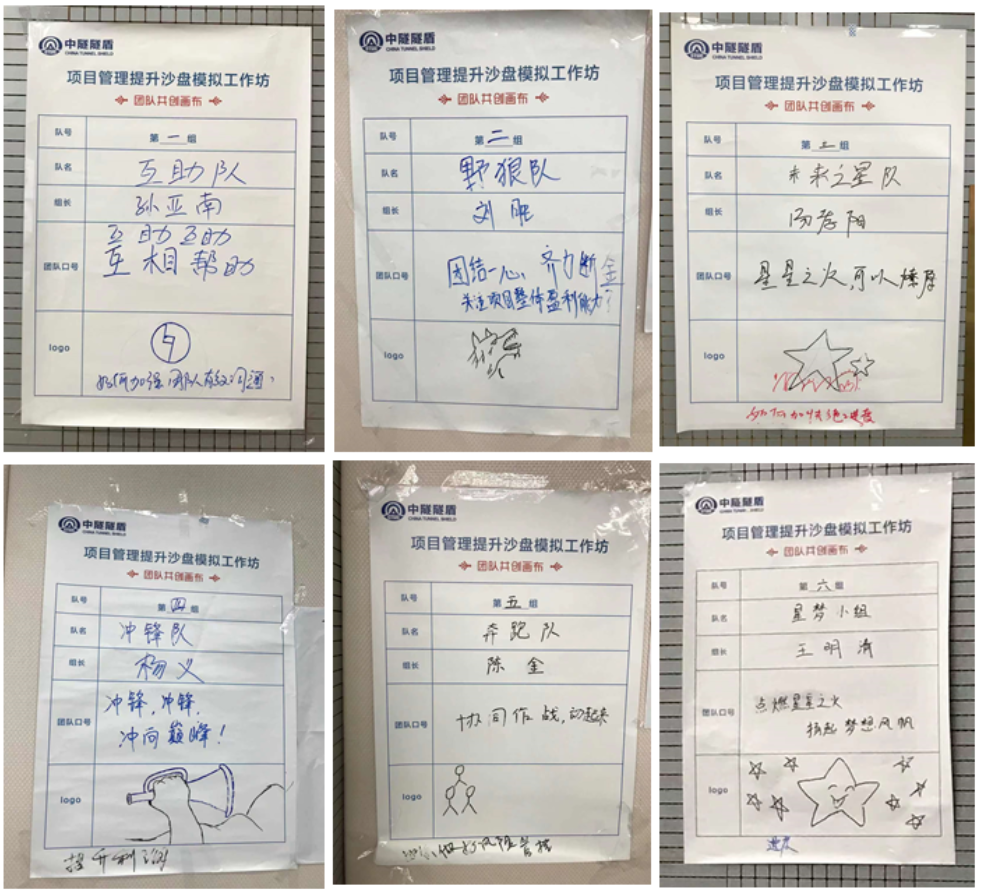 中隧隧盾
CHINA TUNNEL SHIELD
项目管理提升沙盘模拟工作坊
团队共创画布
队号 第一组
队名 互助队
组长 孙亚南
团队口号 互助互助
互相帮助
logo
如何加强团队有效沟通
中隧隧盾
CHINA TUNNEL SHIELD
项目管理提升沙盘模拟工作坊
团队共创画布
队号 第二组
队名 野狼队
组长 刘
团队口号 团结一心、齐力断金
关注项目整体盈利能力?
logo
中隧隧盾
CHINA TUNNEL SHIELD
项目管理提升沙盘模拟工作坊
团队共创画布
队号 第三组
队名 未来之星队
组长
团队口号 星星之火,可以燎原
logo
如何加快施工进度
中隧隧盾
CHINA TUNNEL SHIELD
项目管理提升沙盘模拟工作坊
团队共创画布
队号 第四组
队名 冲锋队
组长 杨义
团队口号 冲锋,冲锋,
冲向巅峰!
logo
提升利润
中隧隧盾
CHINA TUNNEL SHIELD
项目管理提升沙盘模拟工作坊
团队共创画布
队号 第五组
队名 奔跑队
组长 陈金
团队口号 协同作战,动起来
logo
做好风险管控
中隧隧盾
CHINA TUNNEL SHIELD
项目管理提升沙盘模拟工作坊
团队共创画布
队号 第六组
队名 星梦小组
组长 王明清
团队口号 点燃星星之火
扬起梦想风帆
logo
进度